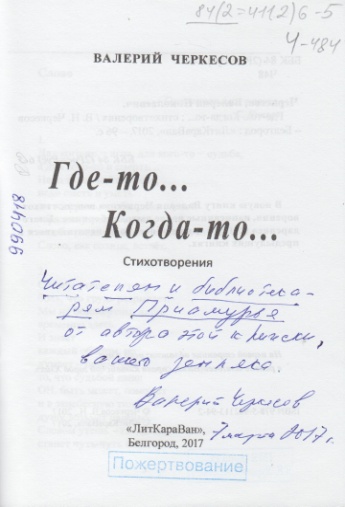 84(2=411.2)6-5
Ч-484
ВАЛЕРИЙ ЧЕРКЕСОВ
990418
Где-то...
Когда-то...
Стихотворения
Читателям и библиотека-
рям Приамурья
от автора этой книжки,
вашего земляка.
Валерий Черкесов
«ЛитКараВан»,
Белгород, 2017
7 марта 2017 г.
Пожертвование